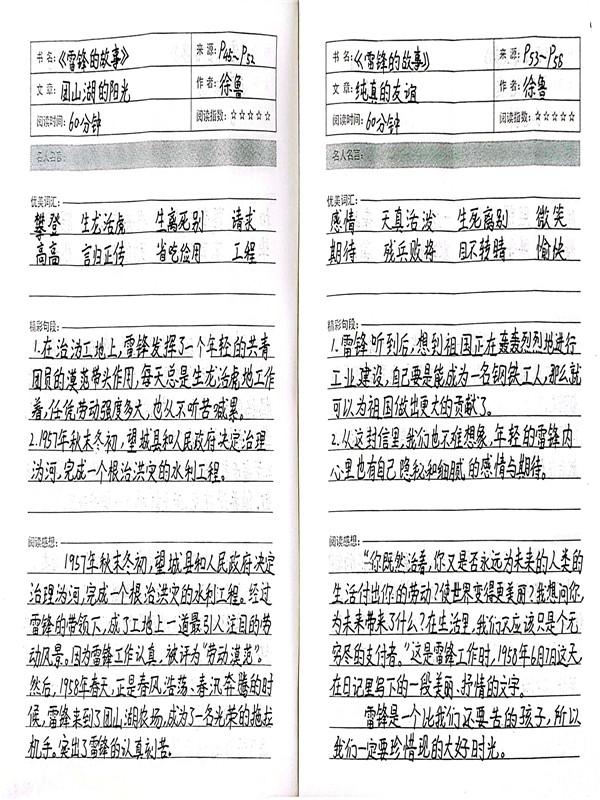 书名:《雷锋的故事》 来源:P45~P52
文章:团山湖的阳光 作者:徐鲁
阅读时间:60分钟 阅读指数:☆☆☆☆☆
名人名言:
优美词汇:
攀登 生龙活虎 生离死别 请求
高高 言归正传 省吃俭用 工程
精彩句段:
1.在治沩工地上,雷锋发挥了一个年轻的共青
团员的模范带头作用,每天总是生龙活虎地工作
着,任凭劳动强度多大,也从不听苦喊累。
2.1957年秋末冬初,望城县和人民政府决定治理
沩河,完成一个根治洪灾的水利工程。
阅读感想:
1957年秋末冬初,望城县和人民政府决定
治理沩河,完成一个根治洪灾的水利工程。经过
雷锋的带领下,成了工地上一道最引人注目的劳
动风景。因为雷锋工作认真,被评为“劳动模范”。
然后,1958年春天,正是春风浩荡、春汛奔腾的时
候,雷锋来到了团山湖农场,成为了一名光荣的拖拉
机手。突出了雷锋的认真刻苦。
书名:《雷锋的故事》 来源:P53~P58
文章:纯真的友谊 作者:徐鲁
阅读时间:60分钟 阅读指数:☆☆☆☆☆
名人名言:
优美词汇:
感情 天真活泼 生死离别 微笑
期待 残兵败将 目不转睛 愉快
精彩句段:
1.雷锋听到后,想到祖国正在轰轰烈烈地进行
工业建设,自己要是能成为一名钢铁工人,那么就
可以为祖国做出更大的贡献了。
2.从这封信里,我们也不难想象,年轻的雷锋内
心里也有自己隐秘和细腻的感情与期待。
阅读感想:
“你既然活着,你又是否永远为未来的人类的
生活付出你的劳动?使世界变得更美丽?我想问你,
为未来带来了什么?在生活里,我们不应该只是个无
穷尽的支付者。”这是雷锋工作时,1958年6月7日这天,
在日记里写下的一段美丽、抒情的文字。
雷锋是一个比我们还要苦的孩子,所以
我们一定要珍惜现的大好时光。